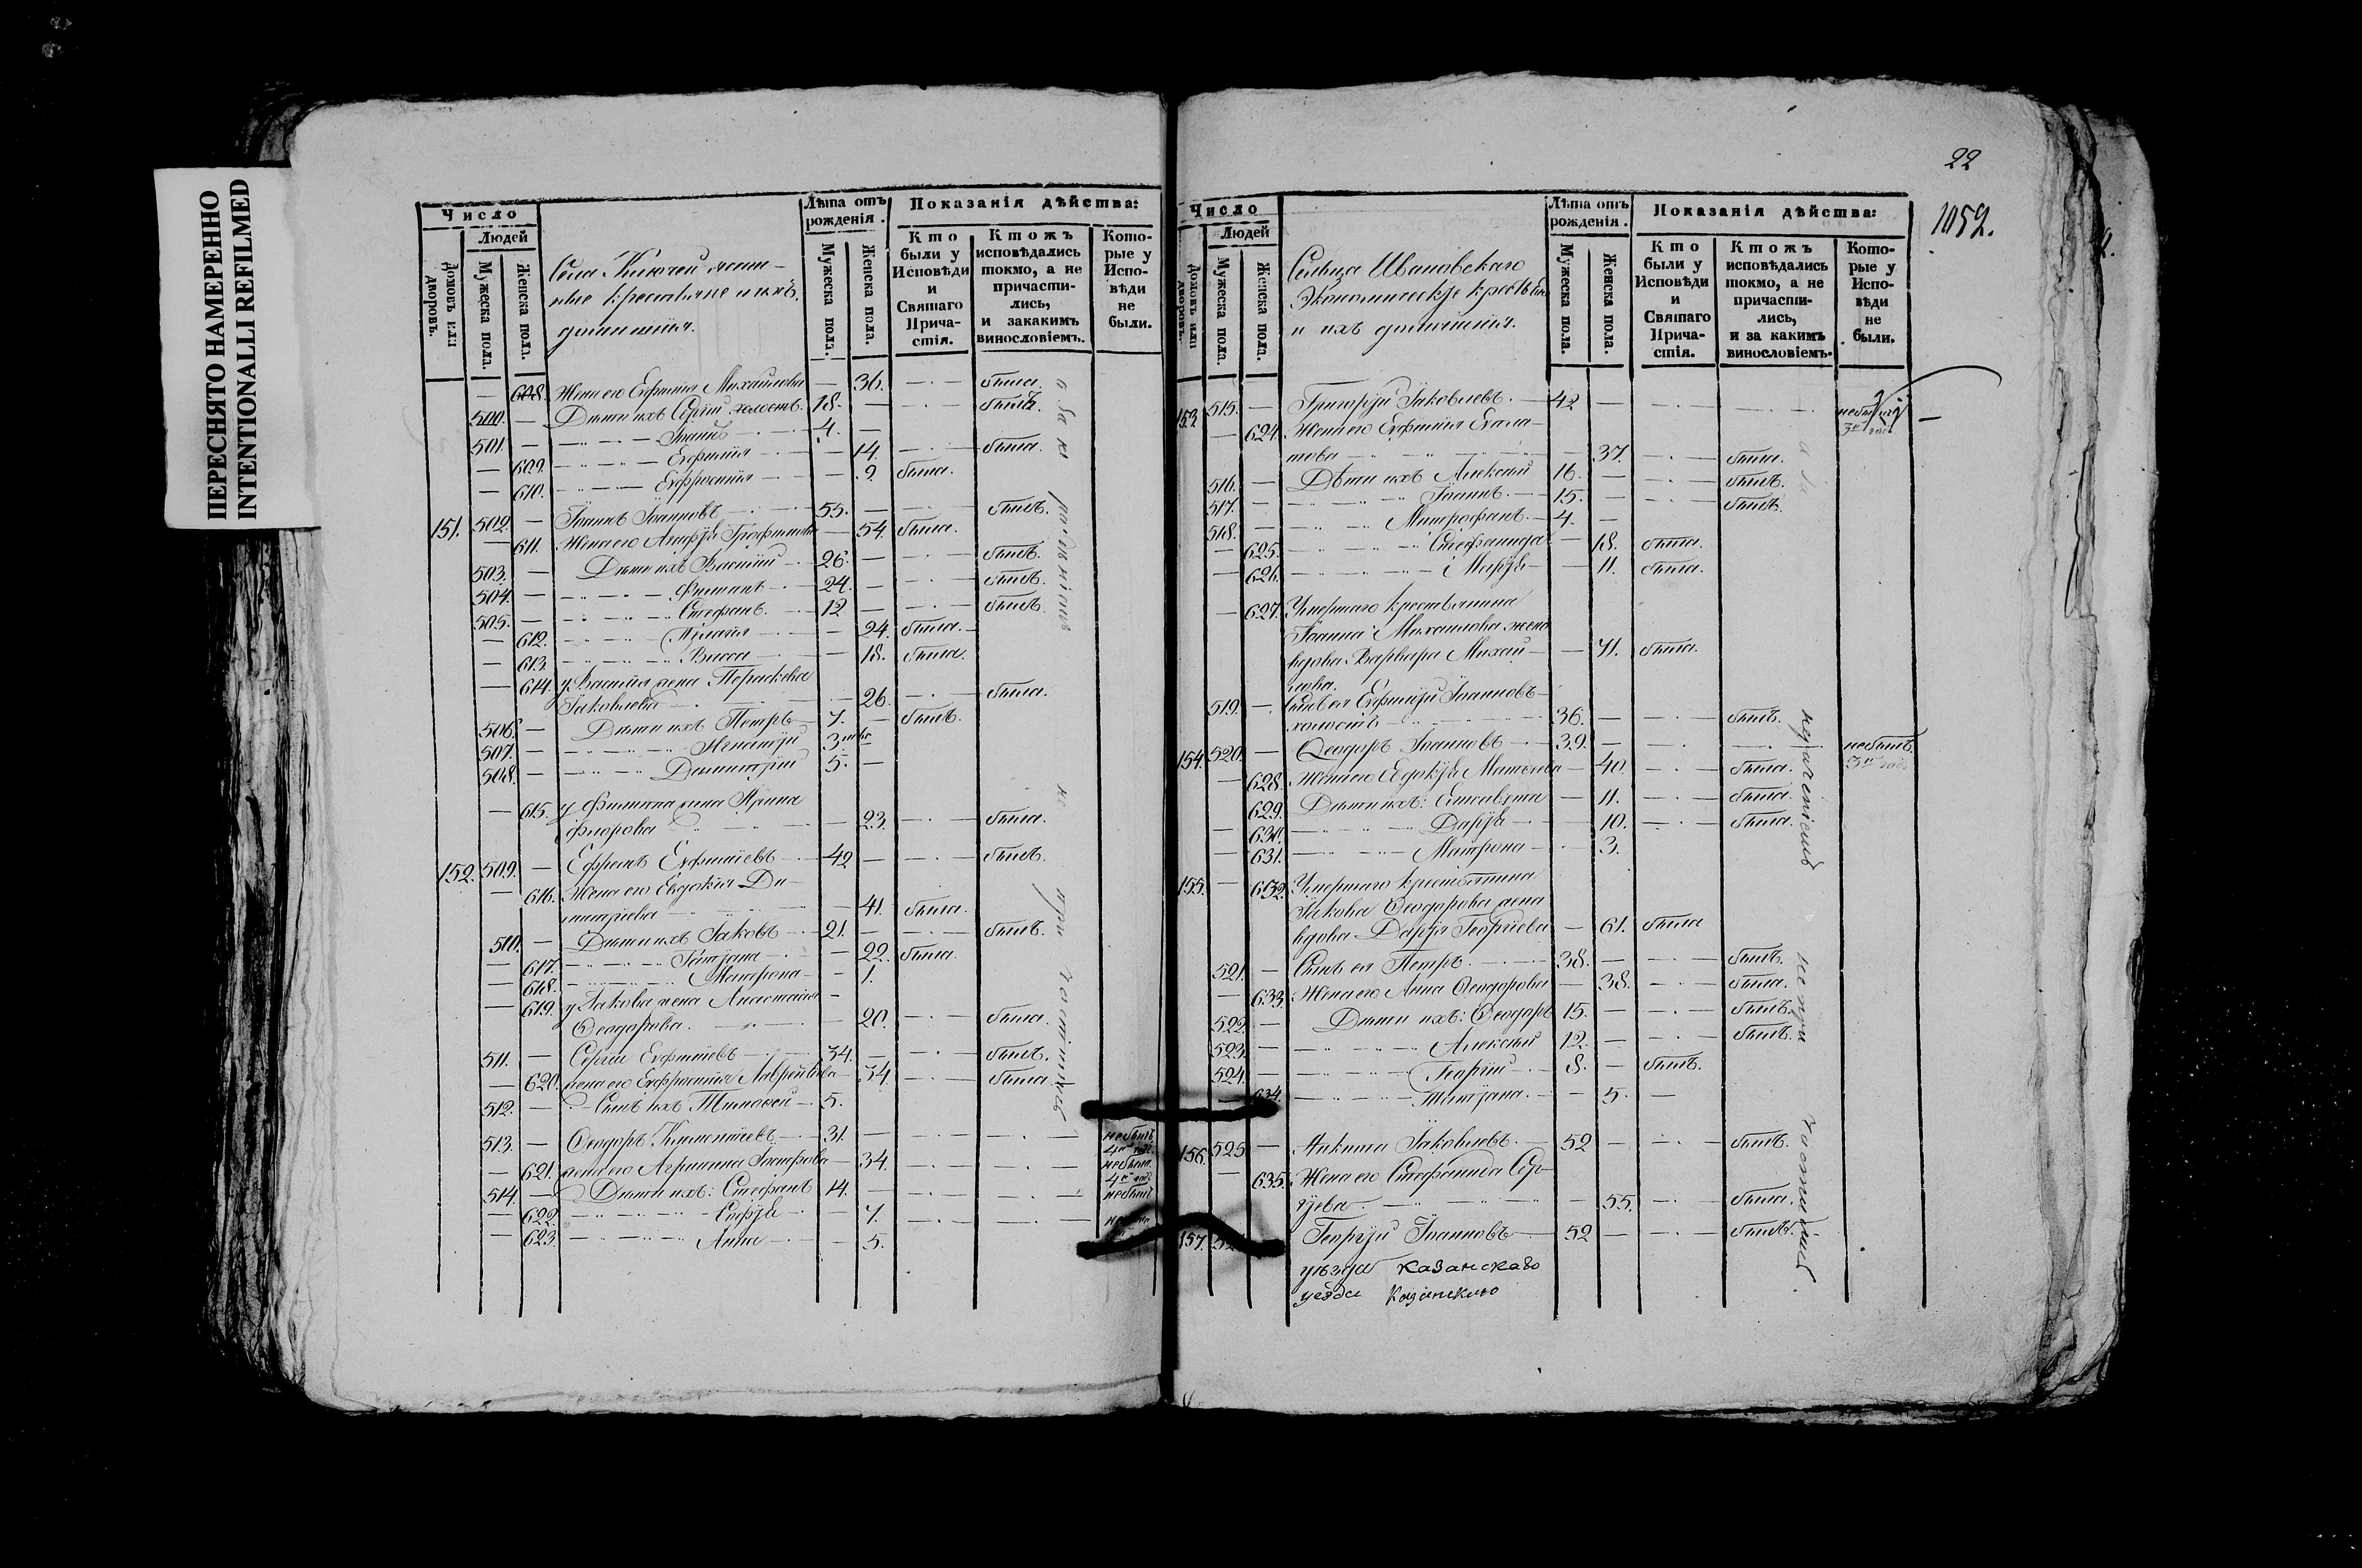 ПЕРЕСНЯТО НАМЕРЕННО
INTENTIONALLI REFILMED
Число
Людей
Домовъ или дворовъ.
Мужеска пола.
Женска пола.
Села Ключей
крестьяне и ихъ
домашнія.
Лѣта отъ рожденія.
Мужеска пола.
Женска пола.
Показанія дѣйства:
Кто были у Исповѣди и Святаго Причастія.
Ктожъ исповѣдались токмо, а не причастились, и закакимъ винословіемъ.
Которые у Исповѣди не были.
— 608. Жена его Евфимія Михайлова — 36. — была.
500. — Дѣти ихъ Сергій холостъ. 18. — — былъ.
501. — Іоаннъ 4. —
— 609. Евфимія — 14. — была.
— 610. Евфросинія — 9. была.
151. 502. — Іоаннъ Іоанновъ 55. — — былъ.
— 611. Жена его — 54. была.
503. — Дѣти ихъ Василій 26. — — былъ.
504. — Филиппъ 24. — — былъ.
505. — Стефанъ. 12 — — былъ.
— 612. Пелагія — 24. была.
— 613. Васса — 18. была.
— 614. у Василія жена Параскева
Іаковлева — 26. — была.
506. — Дѣти ихъ Петръ 7. — былъ.
507. — Игнатій 3. —
508. — Димитрій 5. —
— 615. у Филиппа жена Ирина
Флорова — 23. — была.
152. 509. — Ефремъ Евфиміевъ 42 — — былъ.
— 616. Жена его Евдокія Ди-
митріева — 41. была.
510. — Дѣти ихъ Іаковъ 21. — — былъ.
— 617. Татіана — 22. была.
— 618. Матрона — 1.
— 619. у Іакова жена Анастасія
Ѳеодорова. — 20. — была.
511. — Сергій Евфиміевъ 34. — — былъ.
— 620. жена его Евфросинія Лаврентіева 34. — была.
512. — Сынъ ихъ Тимоѳей 5.
513. — Ѳеодоръ 31. — — — не былъ
— 621. жена его Агрипина 34. — — не была.
514. — Дѣти ихъ: Стефанъ 14. — — — не былъ
— 622. Софія — 7. — —
— 623. Анна — 5.
22
1052.
Число
Людей
Домовъ или дворовъ.
Мужеска пола.
Женска пола.
Сельца Ивановскаго
Экономическіе
и ихъ домашнія.
Лѣта отъ рожденія.
Мужеска пола.
Женска пола.
Показанія дѣйства:
Кто были у Исповѣди и Святаго Причастія.
Ктожъ исповѣдались токмо, а не причастились, и за какимъ винословіемъ.
Которые у Исповѣди не были.
153. 515. — Григорій Іаковлевъ. 42 — — —
— 624. Жена его Евфимія
— 37. — была.
516. — Дѣти ихъ Алексій 16. — — былъ.
517. — Іоаннъ. 15. — — былъ.
518. — Митрофанъ. 4. —
— 625. Стефанида — 18. была.
— 626. Марѳа — 11. была.
— 627. Умершаго крестьянина
Іоанна Михаилова жена
вдова Варвара Михай- — 71. была.
лова.
519. — сынъ ея Евфимій Іоанновъ
холостъ 36. — — былъ.
154. 520. — Ѳеодоръ Іоанновъ 39. — — — не былъ
— 628. Жена его Евдокія — 40. — была.
— 629. Дѣти ихъ: Елисавета — 11. — была.
— 630. Дарія — 10. — была.
— 631. Матрона — 3.
155. — 632. Умершаго крестьянина
Іакова Ѳеодорова жена
вдова Дарія Георгіева — 61. была
521. — Сынъ ея Петръ 38. — — былъ.
— 633. Жена его Анна Ѳеодорова — 38. — была.
522. — Дѣти ихъ: Ѳеодоръ 15. — — былъ.
523. — Алексій 12. — — былъ.
524. — Георгій 8. — былъ.
— 634. Татіана. — 5. —
156. 525 — Никита Іаковлевъ. 52 — — былъ.
— 635. Жена его Стефанида Сер-
гіева. — 55. — была.
157. Георгій Іоанновъ 52 — — былъ.
уѣзда казанскаго
уезда